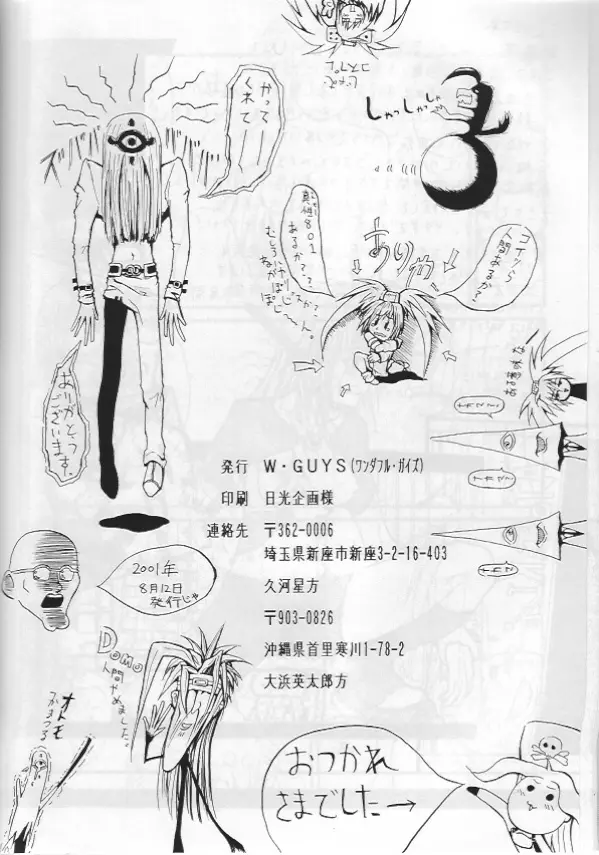 じゃで
コスプレ
しゃっしゃっしゃ
かって
くれて
ありがとう
ございます。
真性801
あるか??
むしろ
ありゃ
コイツら
人間あるか?
発行 W・GUYS(ワンダフル・ガイズ)
印刷 日光企画様
連絡先 〒362-0006
埼玉県新座市新座3-2-16-403
久河星方
〒903-0826
沖縄県首里寒川1-78-2
大浜英太郎方
2001年
8月12日
発行じゃ
Domo
人間やめました。
オトモ
つかまつる
おつかれ
さまでした→